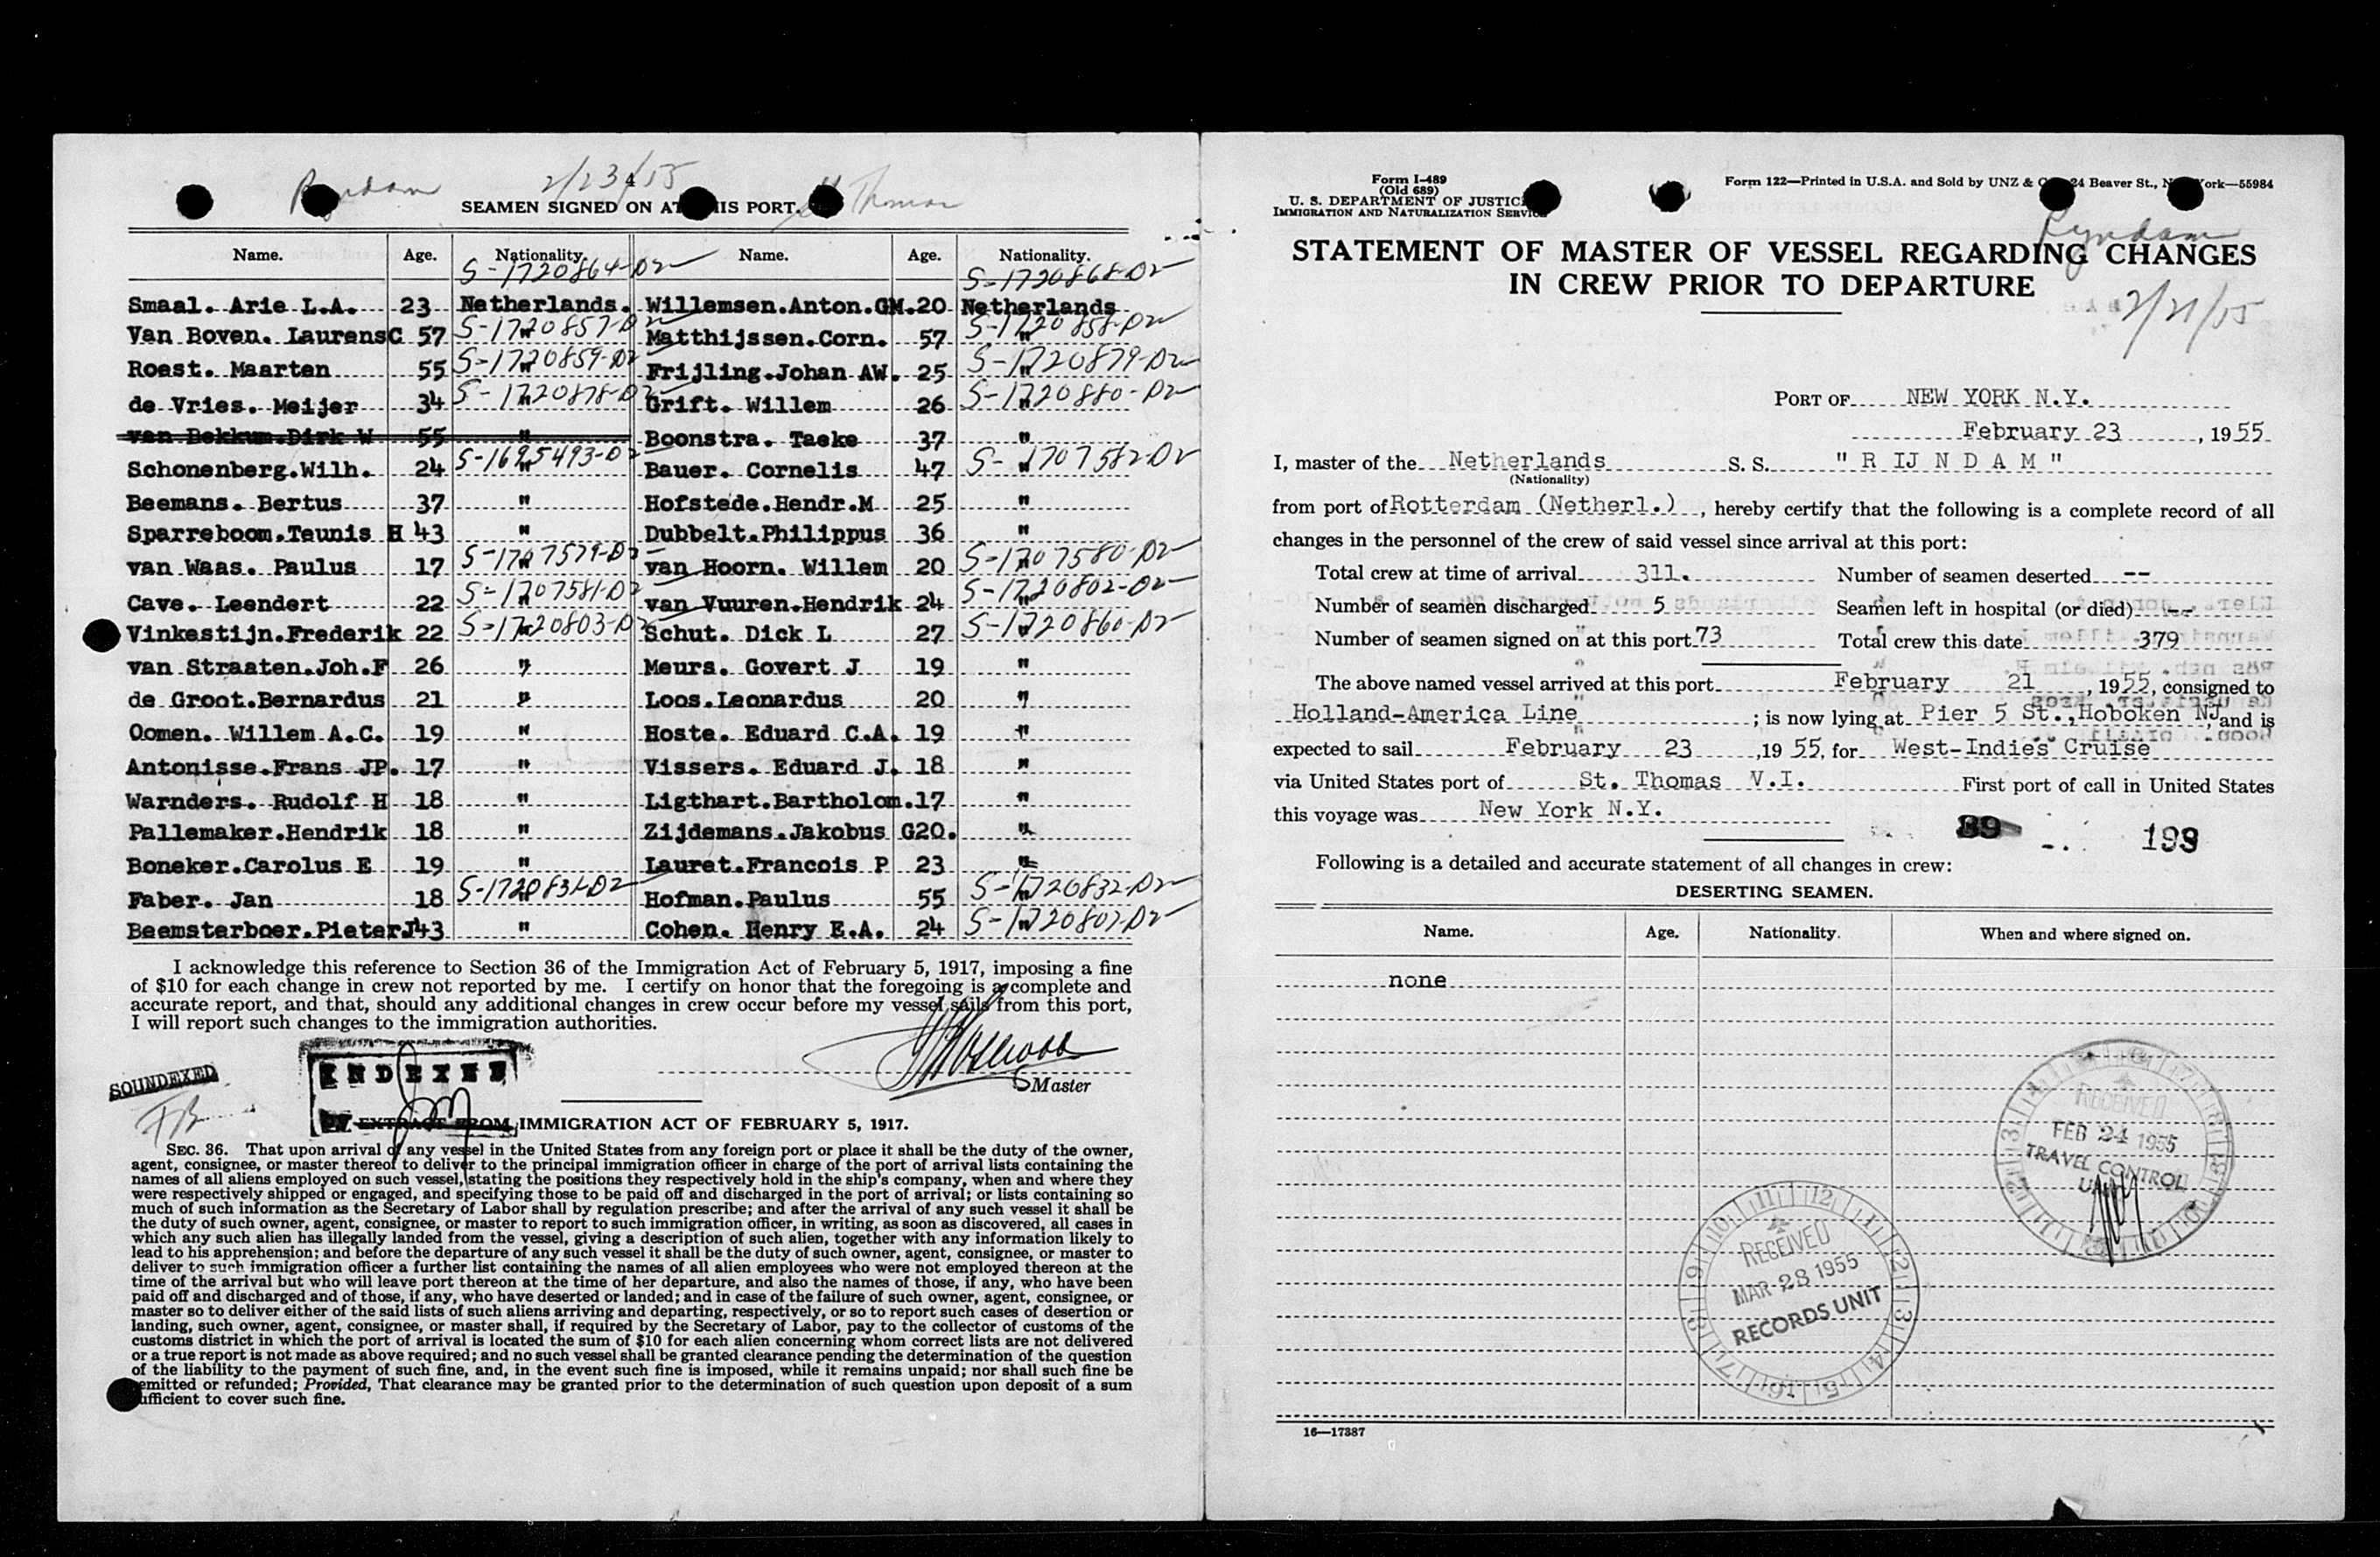 Ryndam 2/23/55 St Thomas
4
SEAMEN SIGNED ON AT THIS PORT.
Name. Age. Nationality. Name. Age. Nationality.
S-1720864-D2 S-1720868-D2
Smaal. Arie L.A. 23 Netherlands. Willemsen.Anton.GM. 20 Netherlands
S-1720857-D2 S-1720858-D2
Van Boven. Laurens C 57 " Matthijssen.Corn. 57 "
S-1720859-D2 S-1720879-D2
Roest. Maarten 55 " Frijling.Johan AW. 25 "
S-1720878-D2 S-1720880-D2
de Vries. Meijer 34 " Grift. Willem 26 "
van Bekkum.Dirk W 55 " Boonstra. Taeke 37 "
S-1695493-D2 S-1707582-D2
Schonenberg.Wilh. 24 " Bauer. Cornelis 47 "
Beemans. Bertus 37 " Hofstede.Hendr.M 25 "
Sparreboom.Teunis H 43 " Dubbelt.Philippus 36 "
S-1707579-D2 S-1707580-D2
van Waas. Paulus 17 " van Hoorn. Willem 20 "
S-1707581-D2 S-1720802-D2
Cave. Leendert 22 " van Vuuren.Hendrik 24 "
S-1720803-D2 S-1720860-D2
Vinkestijn.Frederik 22 " Schut. Dick L 27 "
van Straaten.Joh.F 26 " Meurs. Govert J 19 "
de Groot.Bernardus 21 " Loos.Leonardus 20 "
Oomen. Willem A.C. 19 " Hoste. Eduard C.A. 19 "
Antonisse.Frans JP. 17 " Vissers. Eduard J. 18 "
Warnders. Rudolf H 18 " Ligthart.Bartholom. 17 "
Pallemaker.Hendrik 18 " Zijdemans.Jakobus G 20. "
Boneker.Carolus E 19 " Lauret.Francois P 23 "
S-1720831-D2 S-1720832-D2
Faber. Jan 18 " Hofman.Paulus 55 "
S-1720807-D2
Beemsterboer.Pieter J 43 " Cohen. Henry E.A. 24 "
I acknowledge this reference to Section 36 of the Immigration Act of February 5, 1917, imposing a fine
of $10 for each change in crew not reported by me. I certify on honor that the foregoing is a complete and
accurate report, and that, should any additional changes in crew occur before my vessel sails from this port,
I will report such changes to the immigration authorities.
Master
SOUNDEXED
INDEXED
EXTRACT FROM IMMIGRATION ACT OF FEBRUARY 5, 1917.
SEC. 36. That upon arrival of any vessel in the United States from any foreign port or place it shall be the duty of the owner,
agent, consignee, or master thereof to deliver to the principal immigration officer in charge of the port of arrival lists containing the
names of all aliens employed on such vessel, stating the positions they respectively hold in the ship's company, when and where they
were respectively shipped or engaged, and specifying those to be paid off and discharged in the port of arrival; or lists containing so
much of such information as the Secretary of Labor shall by regulation prescribe; and after the arrival of any such vessel it shall be
the duty of such owner, agent, consignee, or master to report to such immigration officer, in writing, as soon as discovered, all cases in
which any such alien has illegally landed from the vessel, giving a description of such alien, together with any information likely to
lead to his apprehension; and before the departure of any such vessel it shall be the duty of such owner, agent, consignee, or master to
deliver to such immigration officer a further list containing the names of all alien employees who were not employed thereon at the
time of the arrival but who will leave port thereon at the time of her departure, and also the names of those, if any, who have been
paid off and discharged and of those, if any, who have deserted or landed; and in case of the failure of such owner, agent, consignee, or
master so to deliver either of the said lists of such aliens arriving and departing, respectively, or so to report such cases of desertion or
landing, such owner, agent, consignee, or master shall, if required by the Secretary of Labor, pay to the collector of customs of the
customs district in which the port of arrival is located the sum of $10 for each alien concerning whom correct lists are not delivered
or a true report is not made as above required; and no such vessel shall be granted clearance pending the determination of the question
of the liability to the payment of such fine, and, in the event such fine is imposed, while it remains unpaid; nor shall such fine be
remitted or refunded; Provided, That clearance may be granted prior to the determination of such question upon deposit of a sum
sufficient to cover such fine.
Form I-489
(Old 689)
U. S. DEPARTMENT OF JUSTICE
IMMIGRATION AND NATURALIZATION SERVICE
Form 122—Printed in U.S.A. and Sold by UNZ & Co., 24 Beaver St., New York—55984
Ryndam
STATEMENT OF MASTER OF VESSEL REGARDING CHANGES
IN CREW PRIOR TO DEPARTURE
2/21/55
PORT OF NEW YORK N.Y.
February 23, 1955
I, master of the Netherlands S. S. " R IJ N D A M "
(Nationality)
from port of Rotterdam (Netherl.), hereby certify that the following is a complete record of all
changes in the personnel of the crew of said vessel since arrival at this port:
Total crew at time of arrival 311. Number of seamen deserted --
Number of seamen discharged 5 Seamen left in hospital (or died) --
Number of seamen signed on at this port 73 Total crew this date 379
The above named vessel arrived at this port February 21, 1955, consigned to
Holland-America Line; is now lying at Pier 5 St., Hoboken NJ, and is
expected to sail February 23, 1955, for West-Indies Cruise
via United States port of St. Thomas V.I. First port of call in United States
this voyage was New York N.Y.
89 199
Following is a detailed and accurate statement of all changes in crew:
DESERTING SEAMEN.
Name. Age. Nationality. When and where signed on.
none
RECEIVED
FEB 24 1955
TRAVEL CONTROL
UNIT
RECEIVED
MAR 28 1955
RECORDS UNIT
16—17387